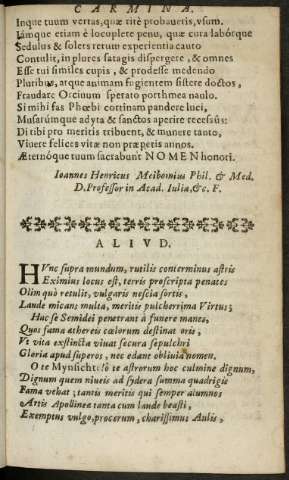 CARMINA.
Inque tuum vertas, quæ ritè probaueris, vsum.
Iámque etiam è locuplete penu, quæ cura labórque
Sedulus & solers rerum experientia cauto
Contulit, in plures satagis dispergere, & omnes
Esse tui similes cupis, & prodesse medendo
Pluribus, atque animam fugientem sistere doctos,
Fraudare Orcinum sperato porthmea naulo.
Si mihi fas Phœbi cortinam pandere luci,
Musarúmque adyta & sanctos aperire recessus:
Di tibi pro meritis tribuent, & munere tanto,
Viuere felices vitæ non præpetis annos.
Æternóque tuum sacrabunt NOMEN honori.
Ioannes Henricus Meibomius Phil. & Med.
D. Professor in Acad. Iulia, &c. F.
ALIVD.
HVnc supra mundum, rutilis conterminus astris
Eximius locus est, terris proscripta penates
Olim quò retulit, vulgaris nescia sortis,
Laude micans multa, meritis pulcherrima Virtus;
Huc se Semidei penetrant à funere manes,
Quos fama æthereis cœlorum destinat oris,
Vt vita exstincta viuat secura sepulchri
Gloria apud superos, nec edane obliuia nomen.
O te Mynsicht: iô te astrorum hoc culmine dignum,
Dignum quem niueis ad sydera summa quadrigis
Fama vehat; tantis meritis qui semper alumnos
Artis Apollineæ tanta cum laude beasti,
Exemptus vulgo, procerum, charissimus Aulis,